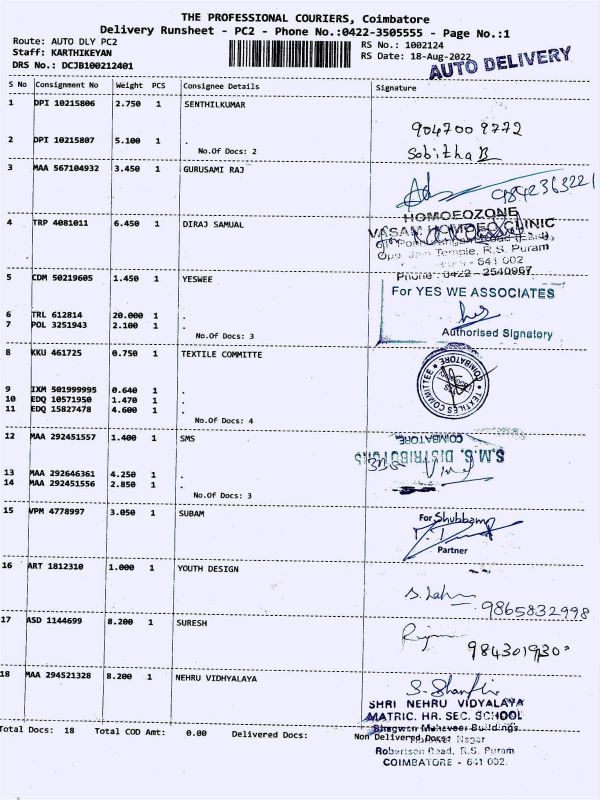 THE PROFESSIONAL COURIERS, Coimbatore
Delivery Runsheet - PC2 - Phone No.:0422-3505555 - Page No.:1
Route: AUTO DLY PC2
RS No.: 1002124
Staff: KARTHIKEYAN
RS Date: 18-Aug-2022
DRS No.: DCJB100212401
AUTO DELIVERY
S No Consignment No Weight PCS Consignee Details Signature
1 DPI 10215806 2.750 1 SENTHILKUMAR
9047009772
2 DPI 10215807 5.100 1 .
No.Of Docs: 2
Sabitha B
3 MAA 567104932 3.450 1 GURUSAMI RAJ
9842363221
HOMOEOZONE
4 TRP 4081011 6.450 1 DIRAJ SAMUAL
VASAM HOMOEO CLINIC
Opp. Jain Temple, R.S. Puram
641 002
Phone : 0422 - 2540967
5 CDM 50219605 1.450 1 YESWEE
For YES WE ASSOCIATES
6 TRL 612814 20.000 1 .
7 POL 3251943 2.100 1 .
No.Of Docs: 3
Authorised Signatory
8 KKU 461725 0.750 1 TEXTILE COMMITTE
COIMBATORE
TEXTILES COMMITTEE
9 IXM 501999995 0.640 1 .
10 EDQ 10571950 1.470 1 .
11 EDQ 15827478 4.600 1 .
No.Of Docs: 4
12 MAA 292451557 1.400 1 SMS
COIMBATORE
S.M.S. DISTRIBUTORS
13 MAA 292646361 4.250 1 .
14 MAA 292451556 2.850 1 .
No.Of Docs: 3
15 VPM 4778997 3.050 1 SUBAM
For Shubbam
Partner
16 ART 1812310 1.000 1 YOUTH DESIGN
9865832998
17 ASD 1144699 8.200 1 SURESH
18 MAA 294521328 8.200 1 NEHRU VIDHYALAYA
SHRI NEHRU VIDYALAYA
MATRIC. HR. SEC. SCHOOL
Bhagwan Mahaveer Buildings
Total Docs: 18 Total COD Amt: 0.00 Delivered Docs: Non Delivered Docs:
Nagar
Robertson Road, R.S. Puram
COIMBATORE - 641 002.